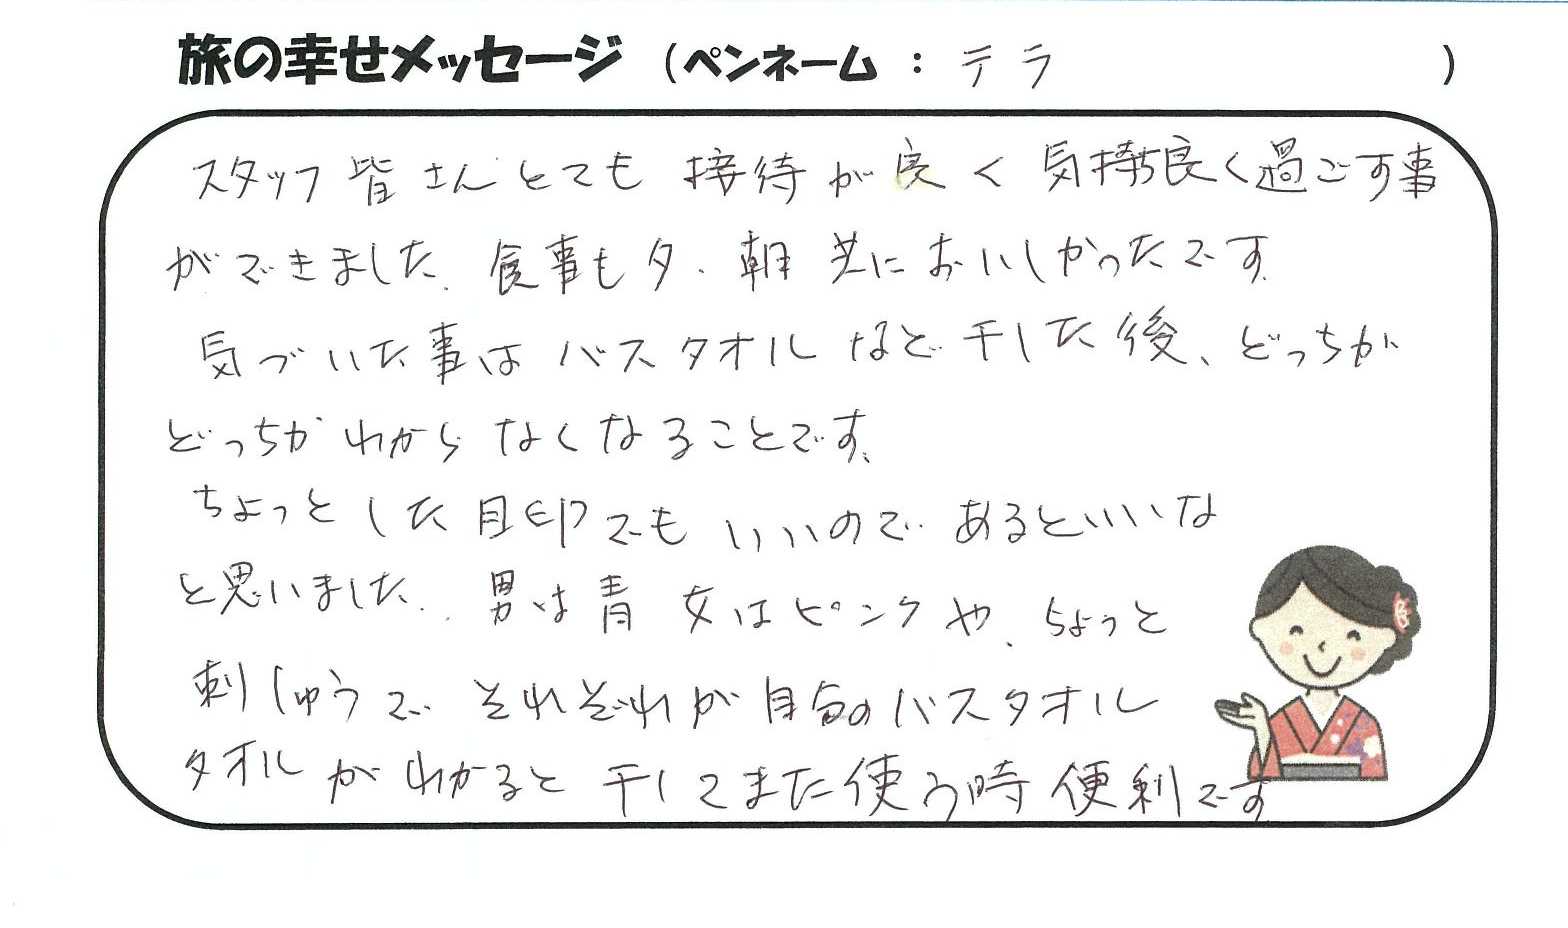 旅の幸せメッセージ (ペンネーム : テラ )
スタッフ皆さんとても接待が良く気持ち良く過ごす事
ができました。食事も夕、朝共においしかったです。
気づいた事はバスタオルなど干した後、どっちが
どっちかわからなくなることです。
ちょっとした目印でもいいのであるといいな
と思いました。男は青 女はピンクや、ちょっと
刺しゅうで それぞれが自分のバスタオル
タオルがわかると干してまた使う時便利です